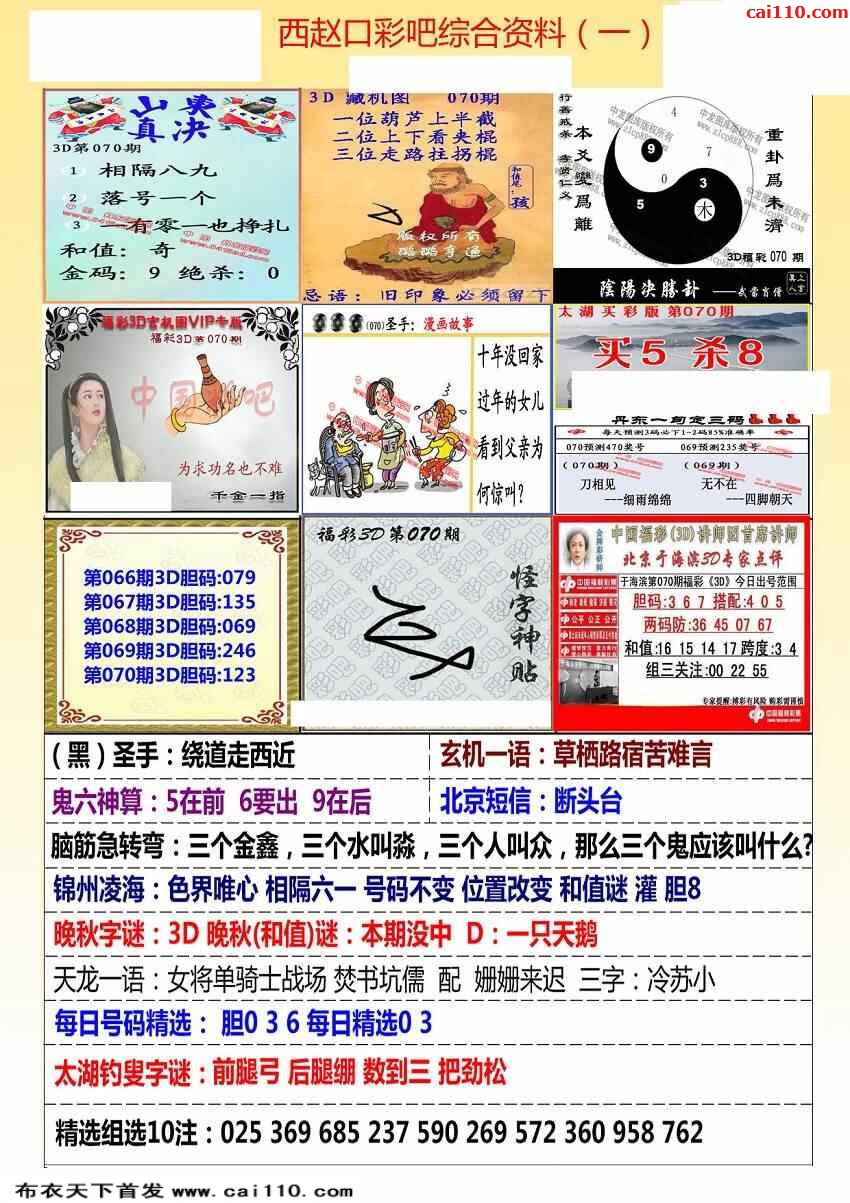 cai110.com
西赵口彩吧综合资料（一）
真决
3D第070期
1 相隔八九
2 落号一个
3 一有零一也挣扎
和值：奇
金码：9 绝杀：0
3D 藏机图 070期
一位葫芦上半截
二位上下看夹棍
三位走路拄拐棍
和值尾：孩
版权所有
忌语：旧印象必须留下
本爻變爲離
重卦爲未濟
4
9
7
0
3
5
木
3D福彩 070 期
陰陽決勝卦 ——武當肖僧
福彩3D玄机图VIP专版
福彩3D第070期
中国彩吧
为求功名也不难
千金一指
(070)圣手：漫画故事
十年没回家
过年的女儿
看到父亲为
何惊叫？
太湖买彩版 第070期
买5 杀8
丹东一句定三码
每天预测3码必下1-2码85%准确率
070预测470奖号 069预测235奖号
（070期） （069期）
刀相见 无不在
----细雨绵绵 ----四脚朝天
第066期3D胆码:079
第067期3D胆码:135
第068期3D胆码:069
第069期3D胆码:246
第070期3D胆码:123
福彩3D第070期
怪字神贴
中国福彩(3D)讲师团首席讲师
北京于海滨3D专家点评
中国福利彩票
于海滨第070期福彩《3D》今日出号范围
胆码:3 6 7 搭配:4 0 5
两码防:36 45 07 67
和值:16 15 14 17 跨度:3 4
组三关注:00 22 55
公平 公正 公开
专家提醒:博彩有风险 购彩需谨慎
中国福利彩票
（黑）圣手：绕道走西近 玄机一语：草栖路宿苦难言
鬼六神算：5在前 6要出 9在后 北京短信：断头台
脑筋急转弯：三个金鑫，三个水叫淼，三个人叫众，那么三个鬼应该叫什么?
锦州凌海：色界唯心 相隔六一 号码不变 位置改变 和值谜 灌 胆8
晚秋字谜：3D 晚秋(和值)谜：本期没中 D：一只天鹅
天龙一语：女将单骑士战场 焚书坑儒 配 姗姗来迟 三字：冷苏小
每日号码精选： 胆0 3 6 每日精选0 3
太湖钓叟字谜：前腿弓 后腿绷 数到三 把劲松
精选组选10注：025 369 685 237 590 269 572 360 958 762
布衣天下首发 www.cai110.com